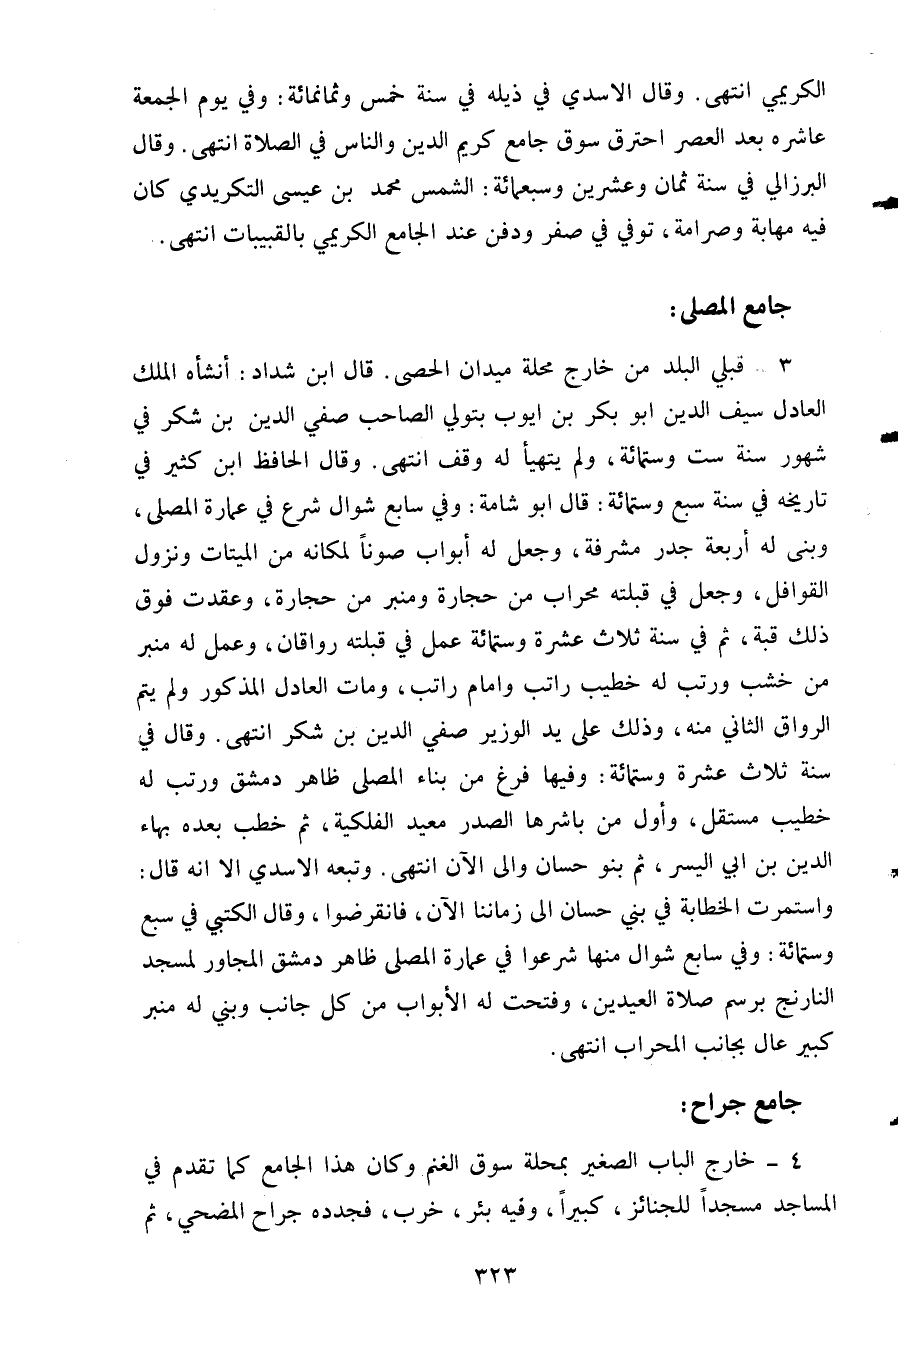 الكريمي انتهى. وقال الاسدي في ذيله في سنة خمس وثمانمائة: وفي يوم الجمعة
عاشره بعد العصر احترق سوق جامع كريم الدين والناس في الصلاة انتهى. وقال
البرزالي في سنة ثمان وعشرين وسبعمائة: الشمس محمد بن عيسى التكريدي كان
فيه مهابة وصرامة، توفي في صفر ودفن عند الجامع الكريمي بالقبيبات انتهى.
جامع المصلى:
٣ - قبلي البلد من خارج محلة ميدان الحصى. قال ابن شداد: أنشأه الملك
العادل سيف الدين ابو بكر بن ايوب بتولي الصاحب صفي الدين بن شكر في
شهور سنة ست وستمائة، ولم يتهيأ له وقف انتهى. وقال الحافظ ابن كثير في
تاريخه في سنة سبع وستمائة: قال ابو شامة: وفي سابع شوال شرع في عمارة المصلى،
وبنى له أربعة جدر مشرفة، وجعل له أبواب صوناً لمكانه من الميتات ونزول
القوافل، وجعل في قبلته محراب من حجارة ومنبر من حجارة، وعقدت فوق
ذلك قبة، ثم في سنة ثلاث عشرة وستمائة عمل في قبلته رواقان، وعمل له منبر
من خشب ورتب له خطيب راتب وامام راتب، ومات العادل المذكور ولم يتم
الرواق الثاني منه، وذلك على يد الوزير صفي الدين بن شكر انتهى. وقال في
سنة ثلاث عشرة وستمائة: وفيها فرغ من بناء المصلى ظاهر دمشق ورتب له
خطيب مستقل، وأول من باشرها الصدر معيد الفلكية، ثم خطب بعده بهاء
الدين بن ابي اليسر، ثم بنو حسان والى الآن انتهى. وتبعه الاسدي الا انه قال:
واستمرت الخطابة في بني حسان الى زماننا الآن، فانقرضوا، وقال الكتبي في سبع
وستمائة: وفي سابع شوال منها شرعوا في عمارة المصلى ظاهر دمشق المجاور لمسجد
النارنج برسم صلاة العيدين، وفتحت له الأبواب من كل جانب وبني له منبر
كبير عال بجانب المحراب انتهى.
جامع جراح:
٤ - خارج الباب الصغير بمحلة سوق الغنم وكان هذا الجامع كما تقدم في
المساجد مسجداً للجنائز، كبيراً، وفيه بئر، خرب، فجدده جراح المضحي، ثم
٣٢٣